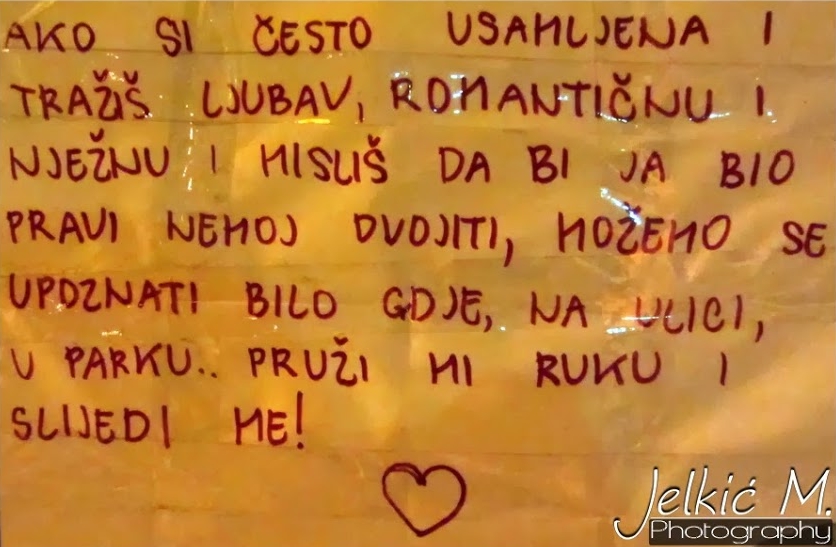 AKO SI ČESTO USAMLJENA I
TRAŽIŠ LJUBAV, ROMANTIČNU I
NJEŽNU I MISLIŠ DA BI JA BIO
PRAVI NEMOJ DVOJITI, MOŽEMO SE
UPOZNATI BILO GDJE, NA ULICI,
U PARKU.. PRUŽI MI RUKU I
SLIJEDI ME!
Jelkić M.
Photography